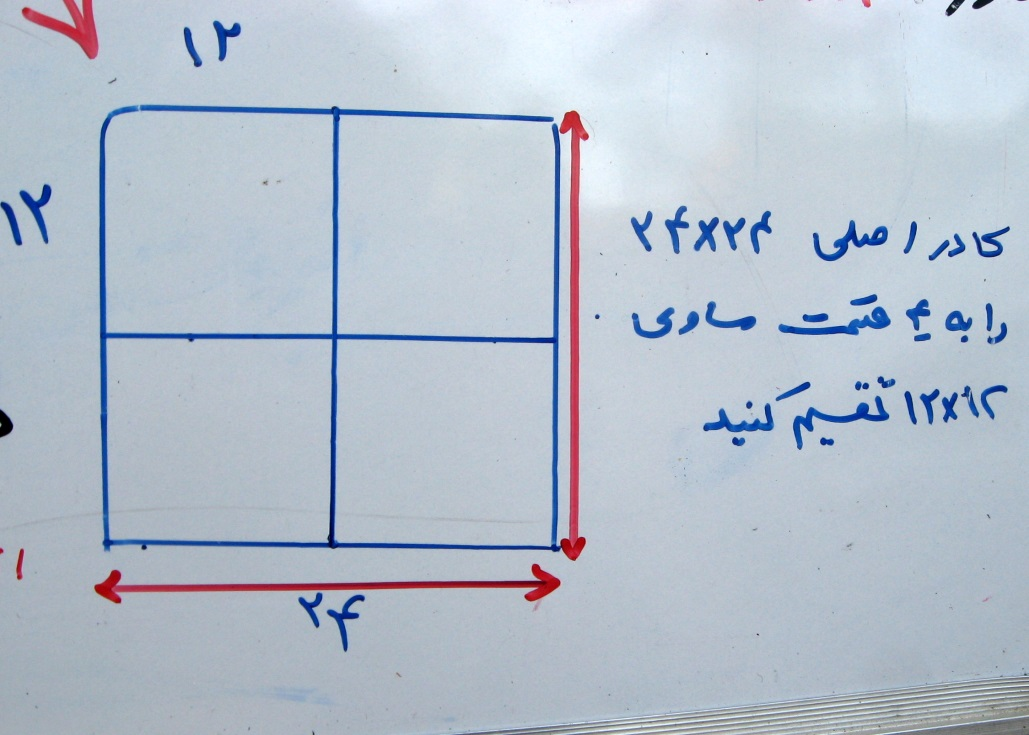 ۱۲
۱۲
کادر اصلی ۲۴x۲۴
را به ۴ قسمت مساوی
۱۲x۱۲ تقسیم کنید
۲۴